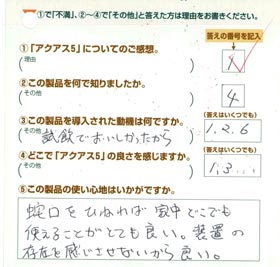 ①で「不満」、②～④で「その他」と答えた方は理由をお書きください。
答えの番号を記入
①「アクアス5」についてのご感想。
(理由
1
②この製品を何で知りましたか。
(その他
4
③この製品を導入された動機は何ですか?
(答えはいくつでも)
(その他 試飲でおいしかったから
1.2.6
④どこで「アクアス5」の良さを感じますか。
(答えはいくつでも)
(その他
1.3
⑤この製品の使い心地はいかがですか。
蛇口をひねれば家中どこでも
使えることがとても良い。装置の
存在を感じさせないから良い。